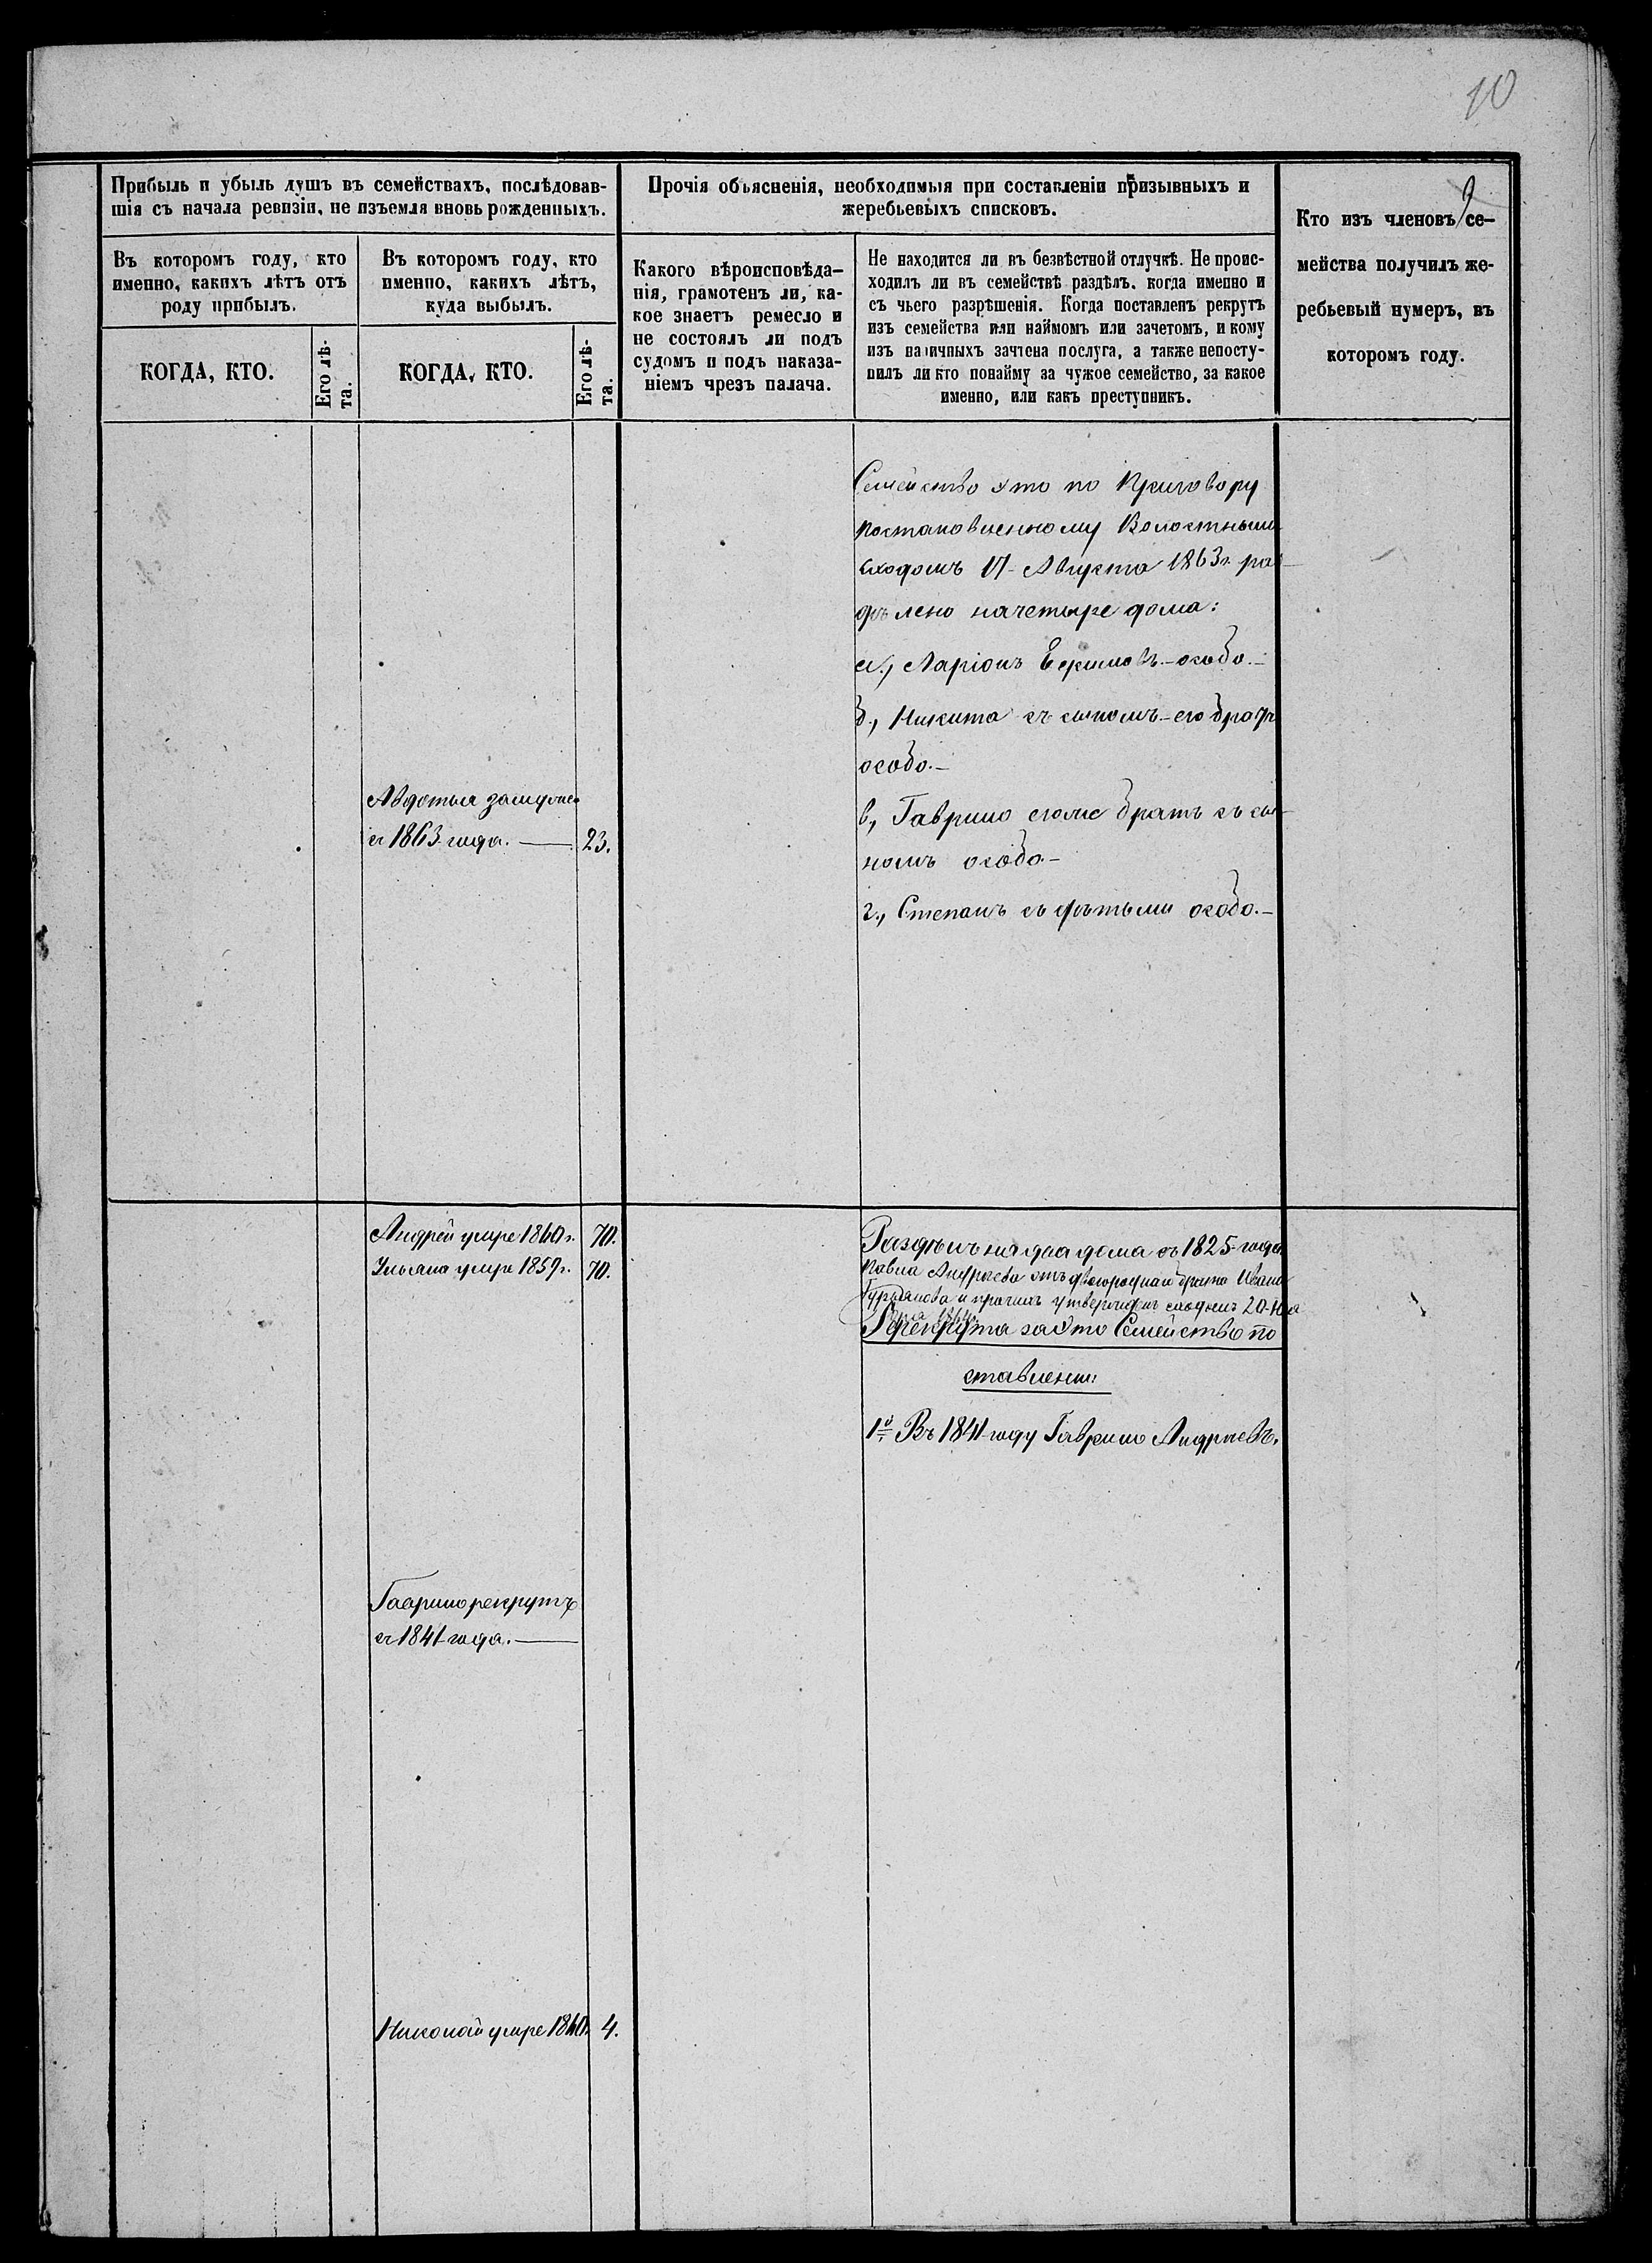 10
9
Прибыль и убыль душъ въ семействахъ, послѣдовав-
шія съ начала ревизіи, не изъемля вновь рожденныхъ.
Въ которомъ году, кто
именно, какихъ лѣтъ отъ
роду прибылъ.
КОГДА, КТО.
Его лѣ-
та.
Въ которомъ году, кто
именно, какихъ лѣтъ,
куда выбылъ.
КОГДА, КТО.
Его лѣ-
та.
Прочія объясненія, необходимыя при составленіи призывныхъ и
жеребьевыхъ списковъ.
Какого вѣроисповѣда-
нія, грамотенъ ли, ка-
кое знаетъ ремесло и
не состоялъ ли подъ
судомъ и подъ наказа-
ніемъ чрезъ палача.
Не находится ли въ безвѣстной отлучкѣ. Не проис-
ходилъ ли въ семействѣ раздѣлъ, когда именно и
съ чьего разрѣшенія. Когда поставленъ рекрутъ
изъ семейства или наймомъ или зачетомъ, и кому
изъ наличныхъ зачтена послуга, а также непосту-
пилъ ли кто понайму за чужое семейство, за какое
именно, или какъ преступникъ.
Кто изъ членовъ се-
мейства получилъ же-
ребьевый нумеръ, въ
которомъ году.
Семейство это по Приговору
постановленному Волостнымъ
сходомъ 17 Августа 1863 г. раз
дѣлено на четыре дома:
а., Ларіонъ Екимовъ - особо. -
б., Никита съ сыномъ - его братъ
особо. -
в., Гаврило егоже братъ съ сы-
номъ особо -
г., Степанъ съ дѣтьми особо. -
Авдотья замуже
съ 1863 года. 23.
Андрей умре 1860 г. 70.
Ульяна умре 1859 г. 70.
Раздѣлъ на два дома съ 1825 года
Павла Андреева отъ двоюродной брата Ивана
и прочихъ утвержденъ сходомъ 20 Ию
1864
рекрута за это Семейство по
ставлены:
1й Въ 1841 году Гаврило Андреевъ,
Гаврило рекрутъ
съ 1841 года.
Николай умре 1860 4.